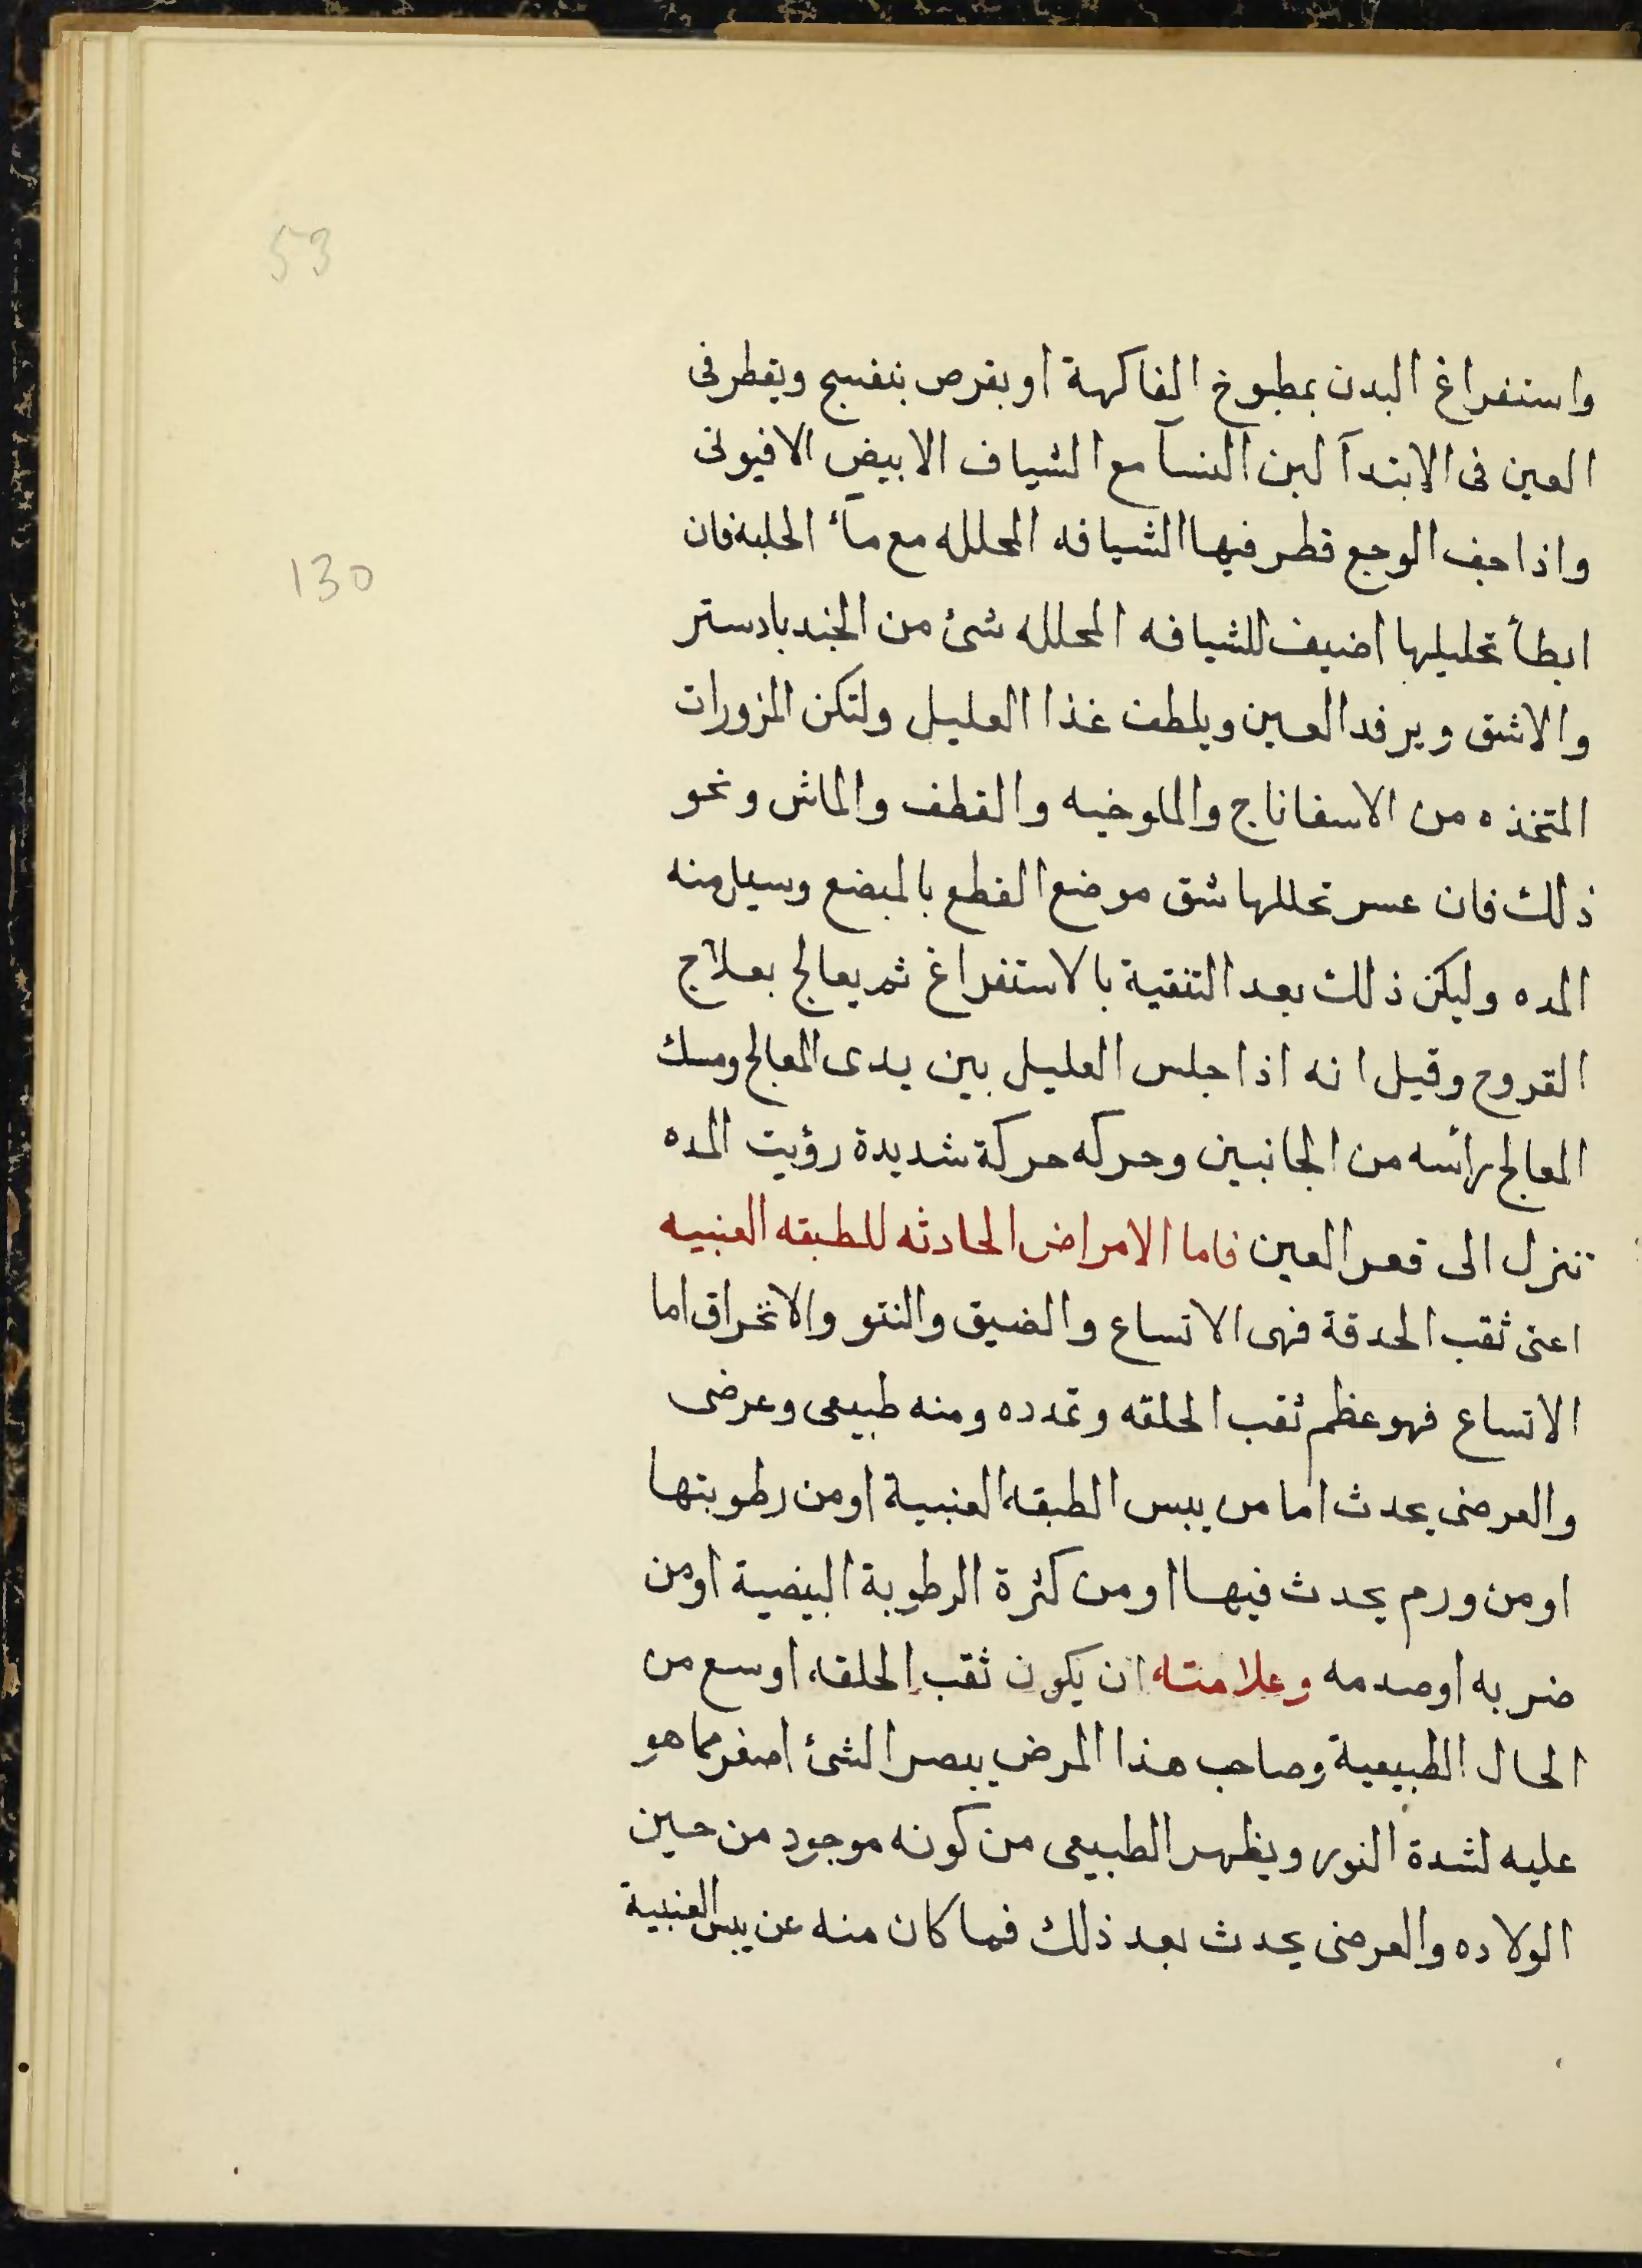 53
واستفراغ البدن بمطبوخ الفاكهة او بقرص بنفسج ويقطر فى
العين فى الابتدآ لبن النسآ مع الشياف الابيض الافيونى
130
واذا خف الوجع قطر فيها الشيافه المحلله مع مآء الحلبة فان
ابطأ تحليلها اضيف للشيافه المحلله شئ من الجندبادستر
والاشق ويرفد العين ويلطف غذا العليل ولتكن المزورات
المتخذه من الاسفاناج والملوخيه والقطف والماش ونحو
ذلك فان عسر تحللها شق موضع القطع بالمبضع وسيل منه
المده وليكن ذلك بعد التنقية بالاستفراغ ثم يعالج بعلاج
القروح وقيل انه اذا جلس العليل بين يدى المعالج ومسك
المعالج برأسه من الجانبين وحركه حركة شديدة رؤيت المده
تنزل الى قعر العين فاما الامراض الحادثه للطبقه العنبيه
اعنى ثقب الحدقة فهى الاتساع والضيق والنتو والانخراق اما
الاتساع فهو عظم ثقب الحلقه وتمدده ومنه طبيعى وعرضى
والعرضى يحدث اما من يبس الطبقه العنبية او من رطوبتها
او من ورم يحدث فيها او من كثرة الرطوبة البيضية او من
ضربه او صدمه وعلامته ان يكون ثقب الحلقه اوسع من
الحال الطبيعية وصاحب هذا المرض يبصر الشئ اصغر مما هو
عليه لشدة النور ويظهر الطبيعى من كونه موجود من حين
الولاده والعرضى يحدث بعد ذلك فما كان منه عن يبس العنبية